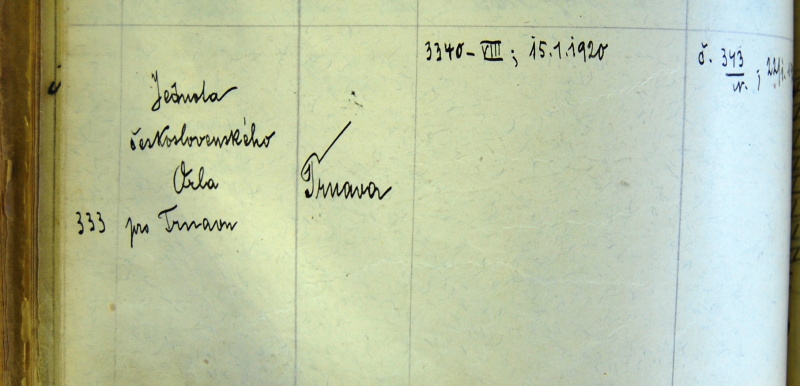 3340-VIII; 15.1.1920
č. 343
Jednota
československého
Orla
333 pro Trnavu
Trnava